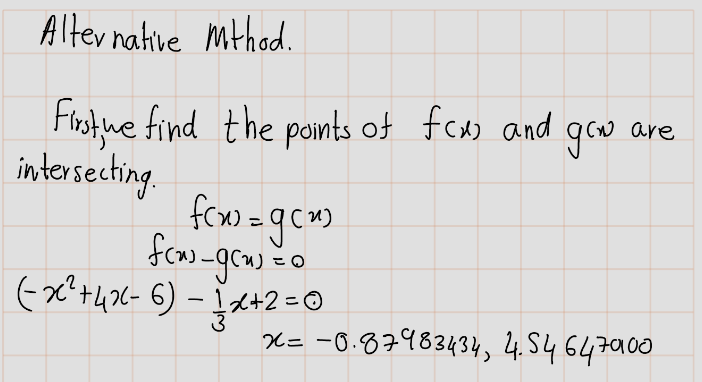 Alternative Mthod.
First, we find the points of f(x) and g(x) are
intersecting.
f(x) = g(x)
f(x) - g(x) = 0
(-x²+4x-6) - 1/3 x+2 = 0
x = -0.87983434, 4.54647900